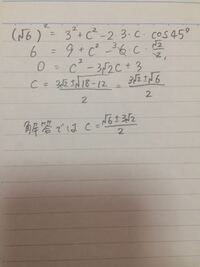 (√6)² = 3² + C² - 2・3・C・cos45°
6 = 9 + C² - ³6C・√2/2,
0 = C² - 3√2C + 3
C = (3√2 ± √18-12)/2 = (3√2 ± √6)/2
解答では C = (√6 ± 3√2)/2